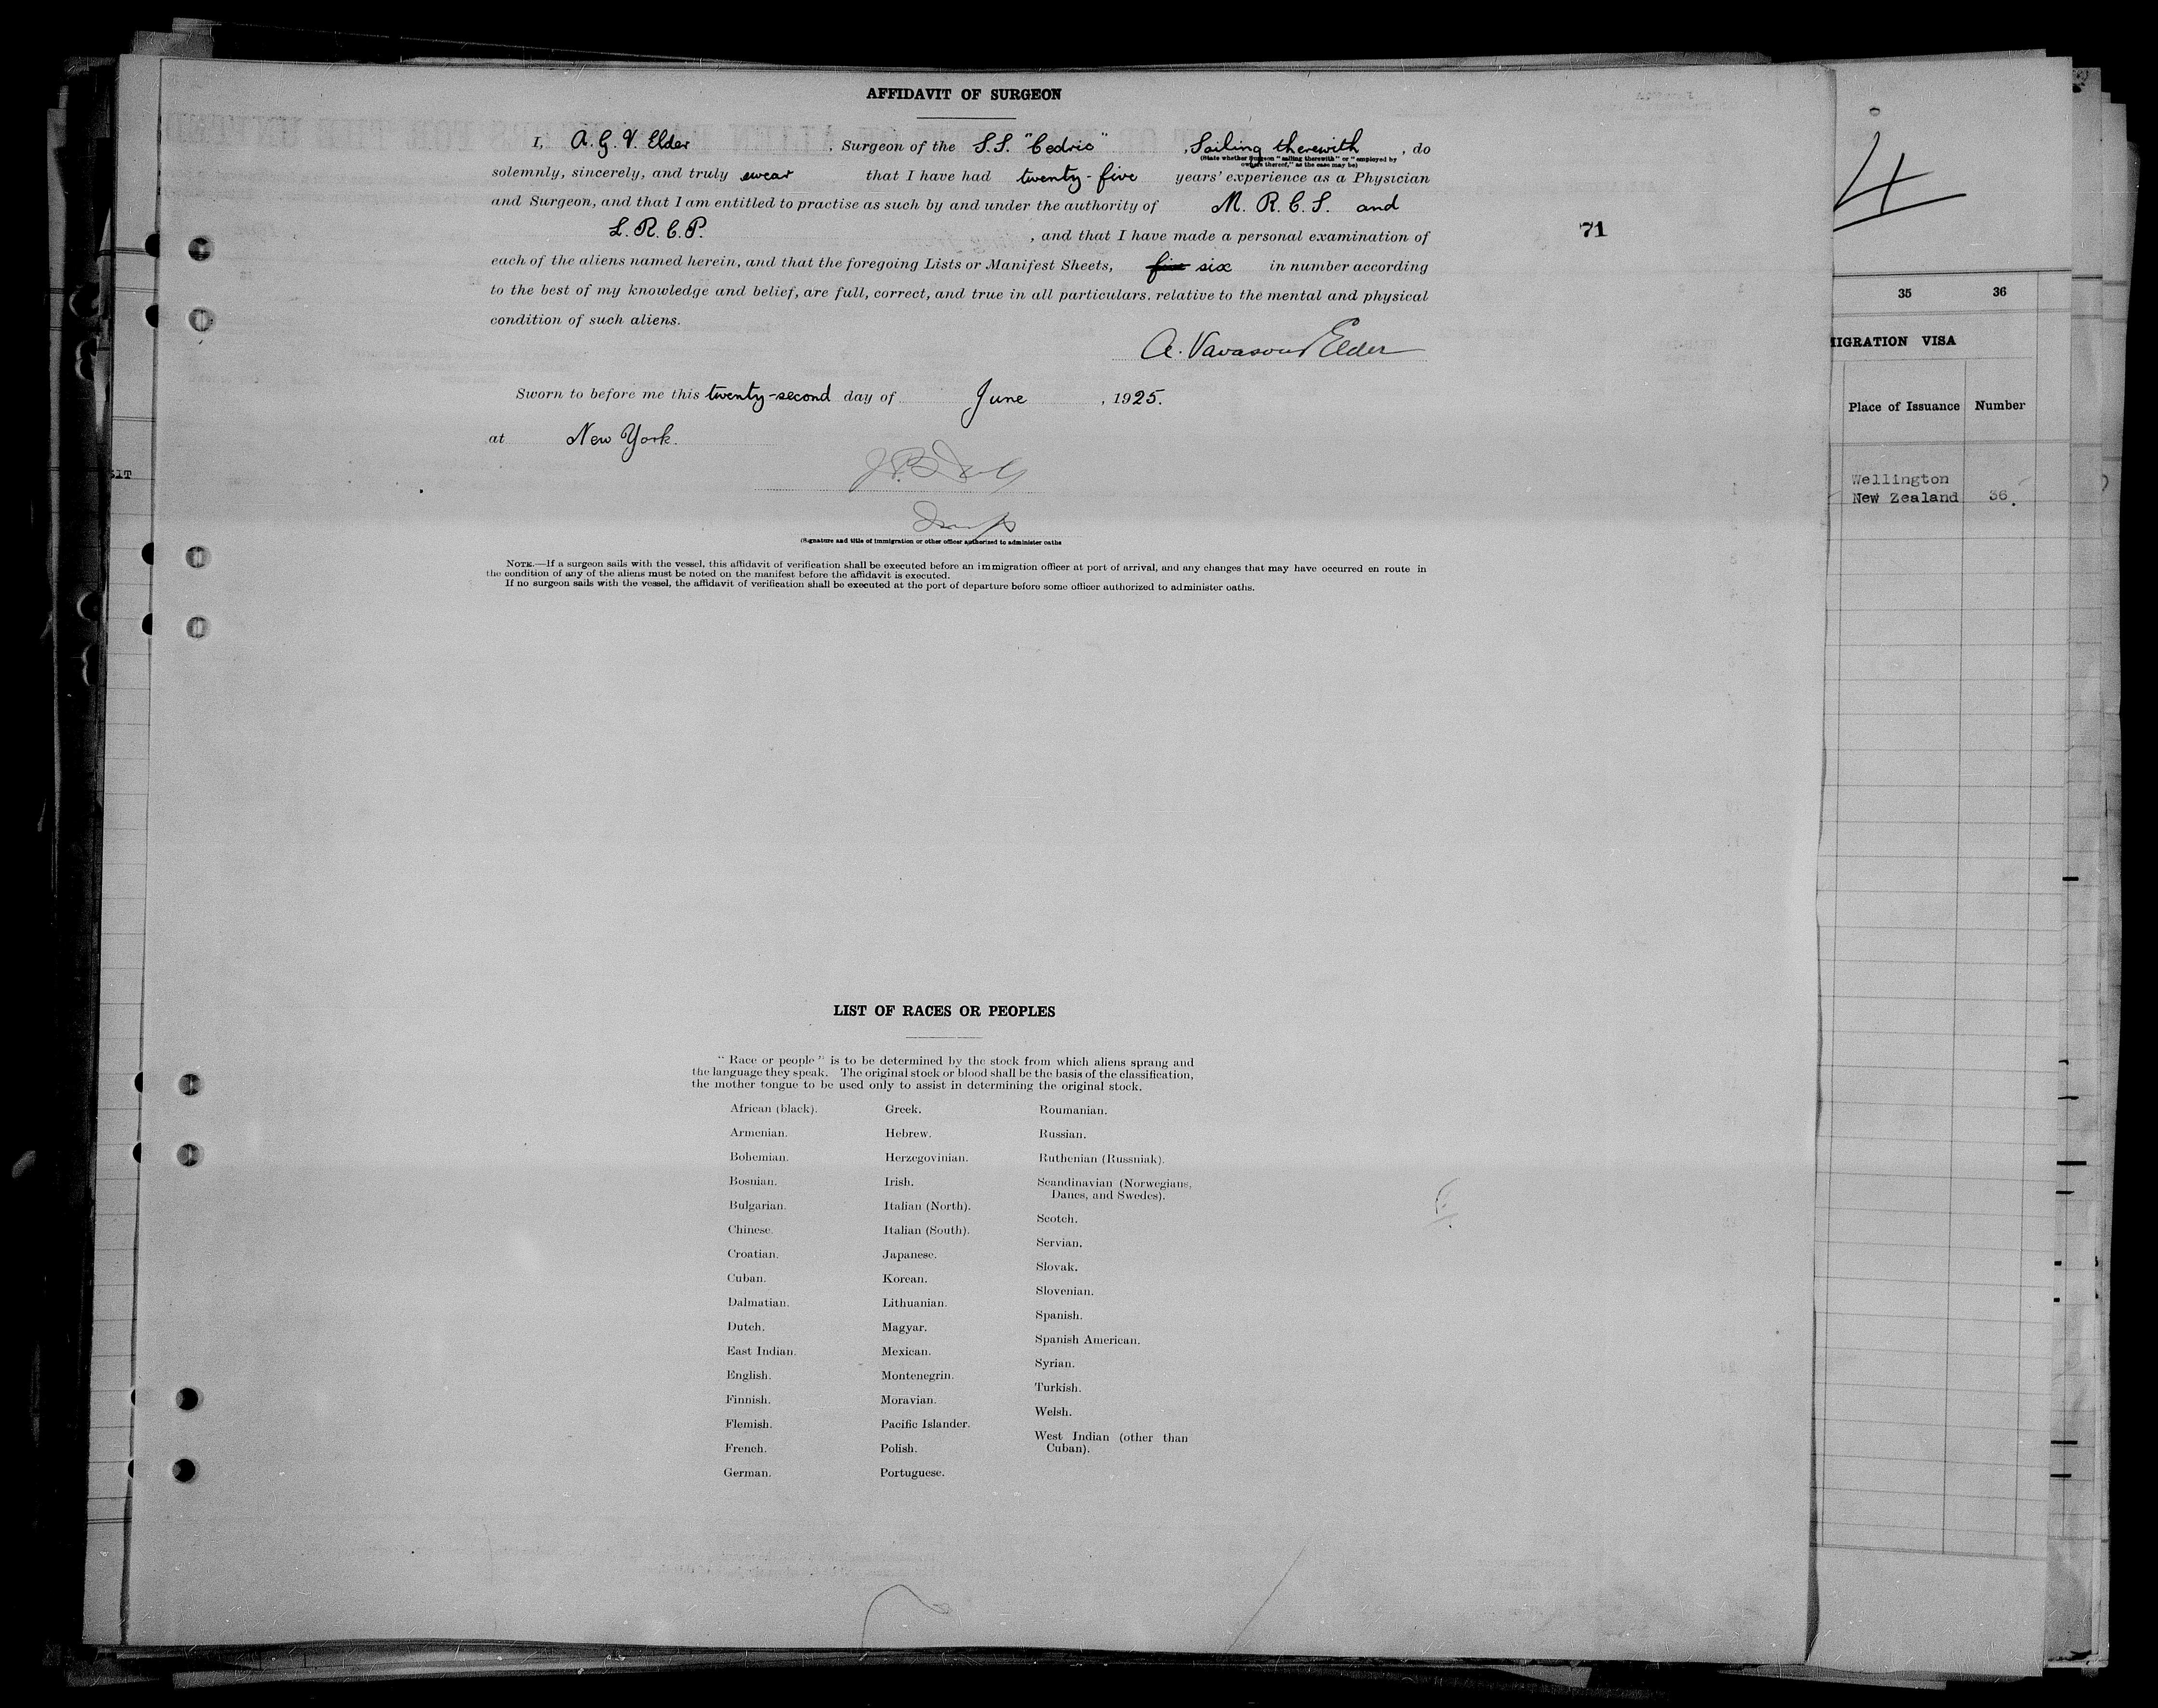 AFFIDAVIT OF SURGEON
I, A. G. V. Elder , Surgeon of the S.S. "Cedric" , Sailing therewith , do
(State whether Surgeon "sailing therewith" or "employed by
owners thereof," as the case may be)
solemnly, sincerely, and truly swear that I have had twenty-five years' experience as a Physician
and Surgeon, and that I am entitled to practise as such by and under the authority of M. R. C. S. and
L. R. C. P. , and that I have made a personal examination of
each of the aliens named herein, and that the foregoing Lists or Manifest Sheets, five six in number according
to the best of my knowledge and belief, are full, correct, and true in all particulars, relative to the mental and physical
condition of such aliens.
A. Vavasour Elder
Sworn to before me this twenty-second day of June , 1925.
at New York.
(Signature and title of immigration or other officer authorized to administer oaths
NOTE.—If a surgeon sails with the vessel, this affidavit of verification shall be executed before an immigration officer at port of arrival, and any changes that may have occurred en route in
the condition of any of the aliens must be noted on the manifest before the affidavit is executed.
If no surgeon sails with the vessel, the affidavit of verification shall be executed at the port of departure before some officer authorized to administer oaths.
71
4
35 36
MIGRATION VISA
Place of Issuance Number
Wellington
New Zealand 36.
LIST OF RACES OR PEOPLES
"Race or people" is to be determined by the stock from which aliens sprang and
the language they speak. The original stock or blood shall be the basis of the classification,
the mother tongue to be used only to assist in determining the original stock.
African (black).
Armenian.
Bohemian.
Bosnian.
Bulgarian.
Chinese.
Croatian.
Cuban.
Dalmatian.
Dutch.
East Indian.
English.
Finnish.
Flemish.
French.
German.
Greek.
Hebrew.
Herzegovinian.
Irish.
Italian (North).
Italian (South).
Japanese.
Korean.
Lithuanian.
Magyar.
Mexican.
Montenegrin.
Moravian.
Pacific Islander.
Polish.
Portuguese.
Roumanian.
Russian.
Ruthenian (Russniak).
Scandinavian (Norwegians,
Danes, and Swedes).
Scotch.
Servian.
Slovak.
Slovenian.
Spanish.
Spanish American.
Syrian.
Turkish.
Welsh.
West Indian (other than
Cuban).